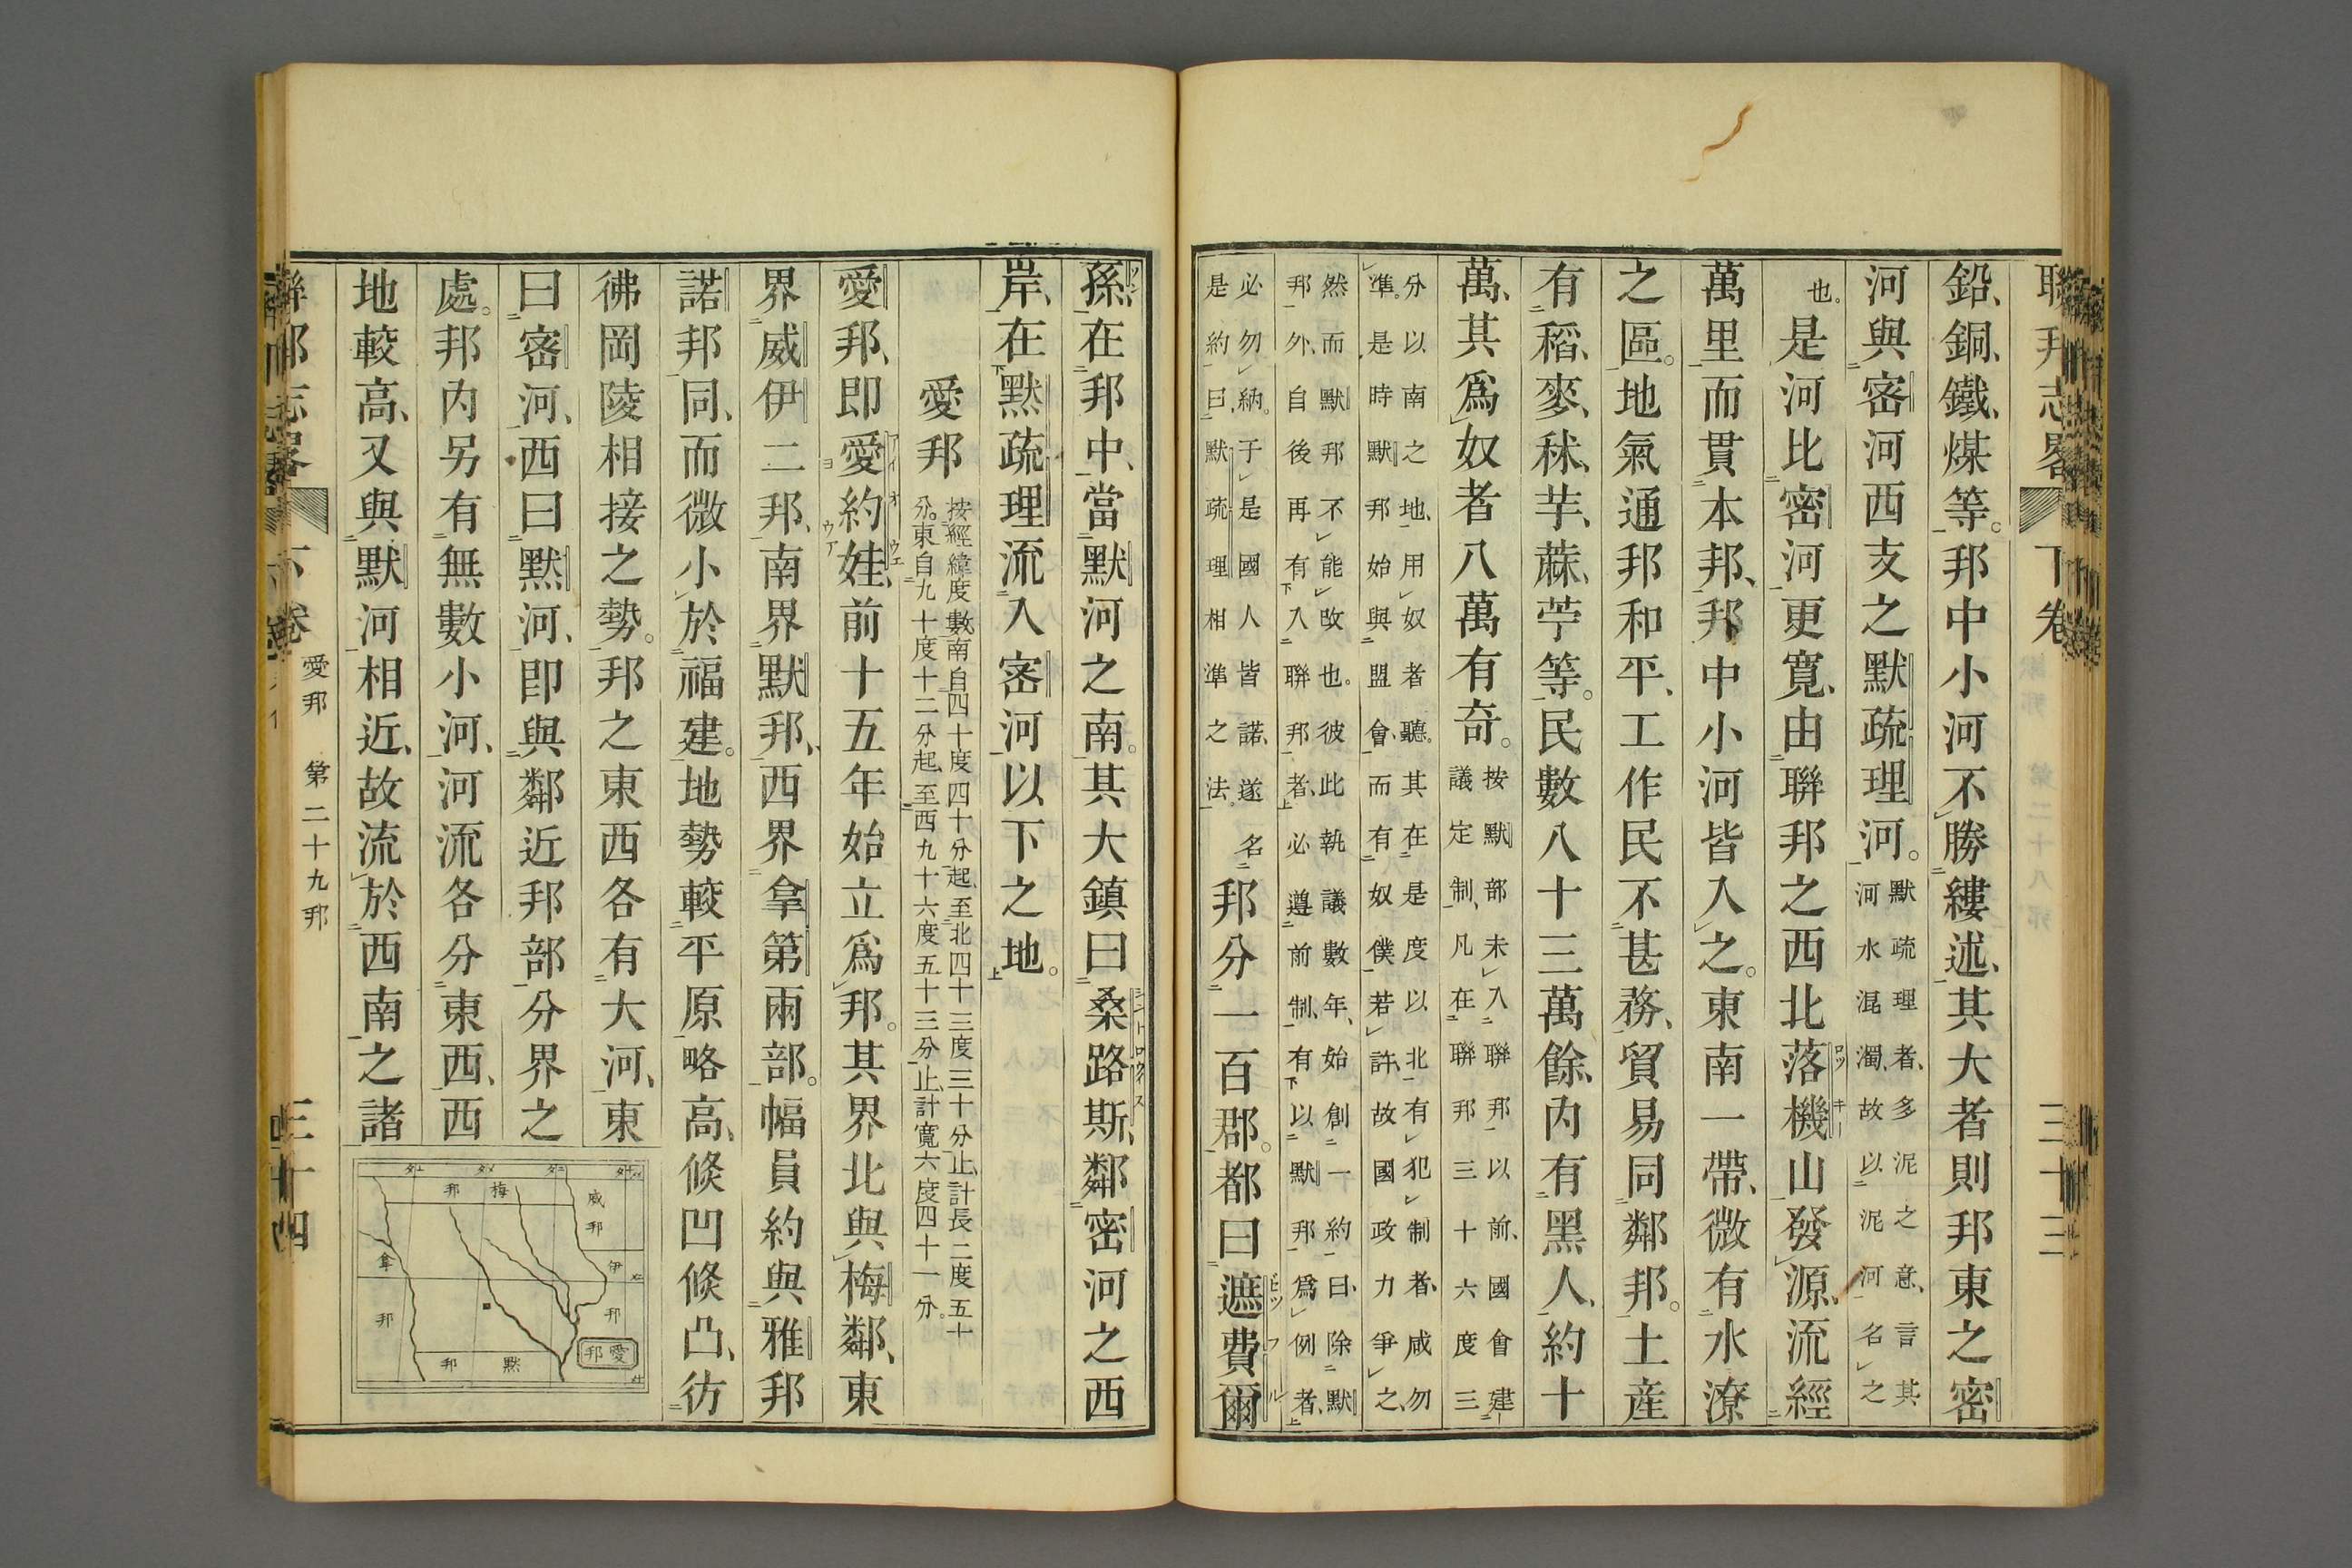 聯邦志畧 下卷 三十三
鉛、銅、鐵、煤等。邦中小河不勝縷述、其大者則邦東之密
河與密河西支之默疏理河。默疏理者、多泥之意、言其
河水混濁、故以泥河名之
也。是河比密河更寬、由聯邦之西北落機山發源、流經
萬里而貫本邦、邦中小河皆入之。東南一帶、微有水潦
之區。地氣通邦和平、工作民不甚務、貿易同鄰邦。土産
有稻、麥、秫、芋、蔴、苧等。民數八十三萬餘、內有黑人、約十
萬、其爲奴者八萬有奇。按默部未入聯邦以前、國會建
議定制、凡在聯邦三十六度三
分以南之地、用奴者聽。其在是度以北有犯制者、咸勿
準。是時默邦始與盟會、而有奴僕若許、故國政力爭之、
然而默邦不能改也。彼此執議數年、始創一約曰、除默
邦外、自後再有入聯邦者、必遵前制、有以默邦爲例者、
必勿納。于是國人皆諾、遂名
是約曰、默疏理相準之法。
邦分一百郡。都曰遮費爾
孫、在邦中、當默河之南。其大鎮曰桑路斯、鄰密河之西
岸、在默疏理流入密河以下之地。
愛邦 按經緯度數南自四十度四十分起、至北四十三度三十分止、計長二度五十
分。東自九十度十二分起、至西九十六度五十三分止、計寬六度四十一分。
愛邦、即愛約娃、前十五年始立爲邦。其界北與梅鄰、東
界威伊二邦、南界默邦、西界拿第兩部。幅員約與雅邦
諾邦同、而微小於福建。地勢較平原略高、倏凹倏凸、彷
彿岡陵相接之勢。邦之東西各有大河、東
曰密河、西曰默河、卽與鄰近邦部分界之
處。邦內另有無數小河、河流各分東西、西
地較高、又與默河相近、故流於西南之諸
梅邦
威邦
伊邦
拿邦
默邦
愛邦
聯邦志畧 下卷 愛邦 第二十九邦 三十四